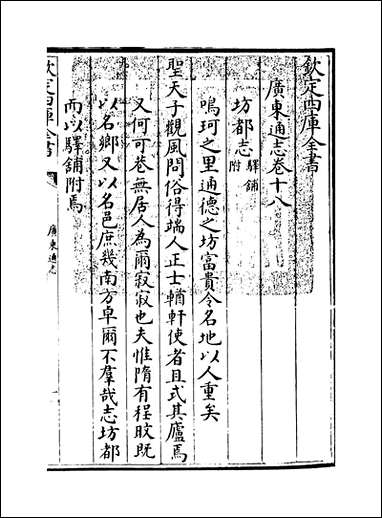 欽定四庫全書
廣東通志卷十八
坊都志驛舖附
鳴珂之里通德之坊富貴令名地以人重矣
聖天子觀風問俗得端人正士輶軒使者且式其廬焉
又何可巷無居人為爾寂寂也夫惟隋有程旼既
以名鄉又以名邑庶幾南方卓爾不羣哉志坊都
而以驛舖附焉
欽定四庫全書
廣東通志
一